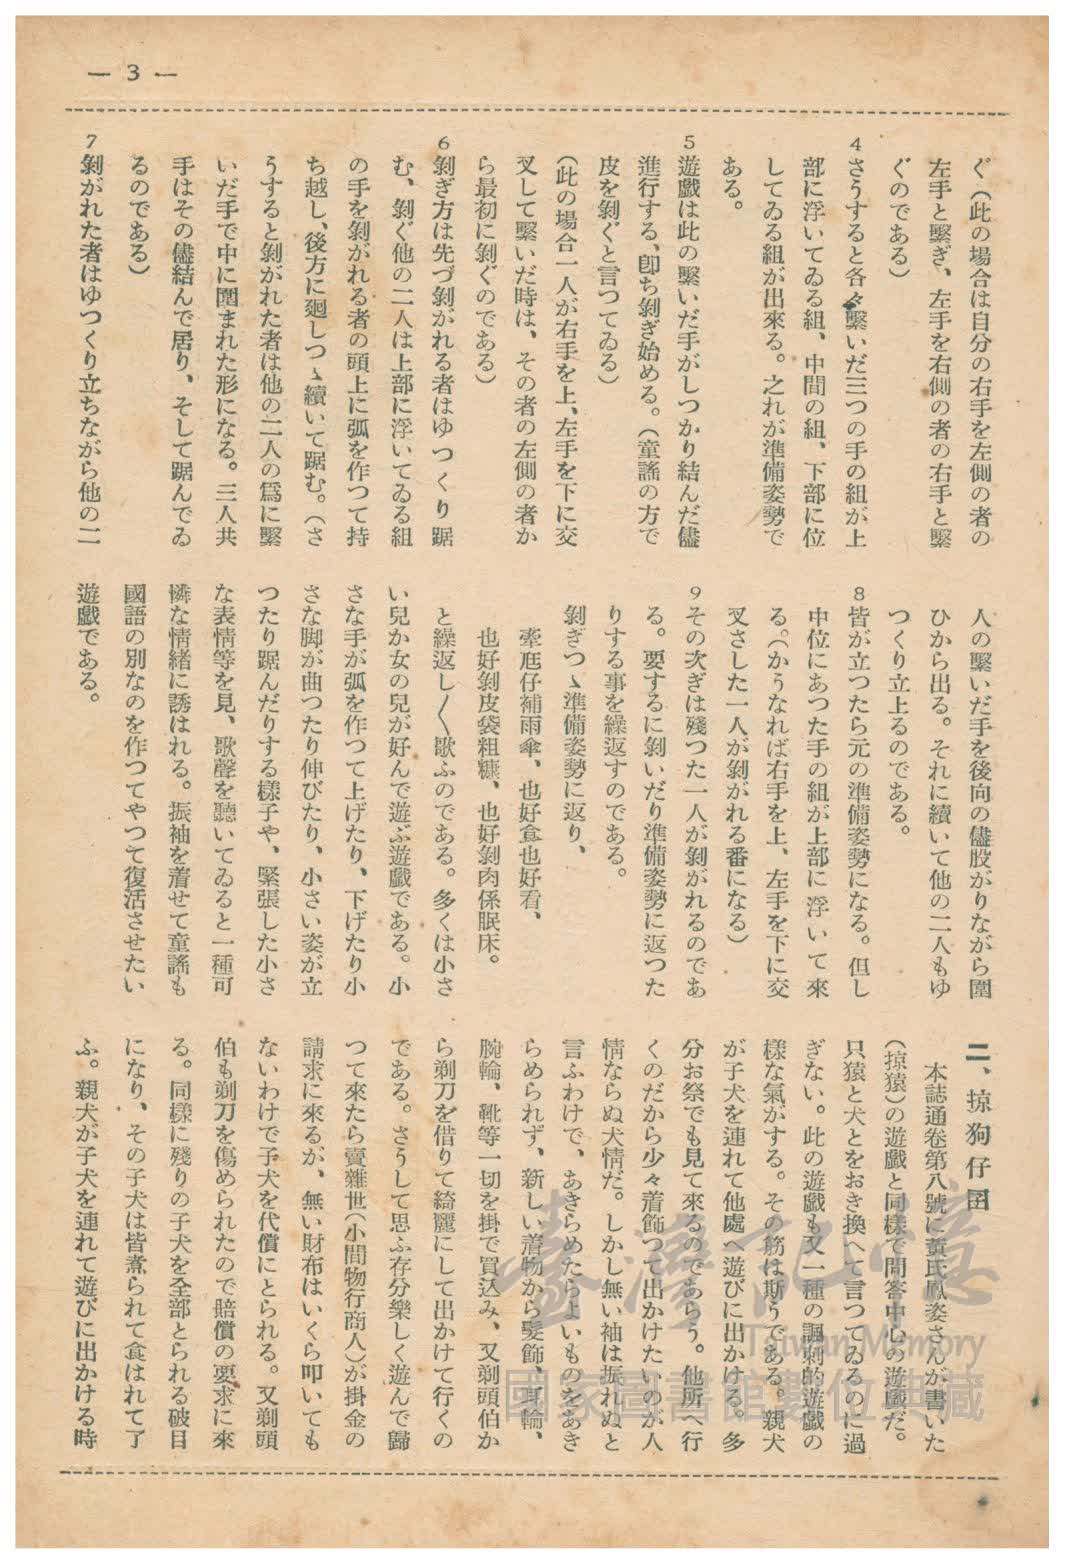 — 3 —
ぐ（此の場合は自分の右手を左側の者の
左手と繫ぎ、左手を右側の者の右手と繫
ぐのである）
4 さうすると各々繫いだ三つの手の組が上
部に浮いてゐる組、中間の組、下部に位
してゐる組が出來る。之れが準備姿勢で
ある。
5 遊戲は此の繫いだ手がしつかり結んだ儘
進行する、卽ち剝ぎ始める。（童謠の方で
皮を剝ぐと言つてゐる）
（此の場合一人が右手を上、左手を下に交
叉して繫いだ時は、その者の左側の者か
ら最初に剝ぐのである）
6 剝ぎ方は先づ剝がれる者はゆつくり踞
む、剝ぐ他の二人は上部に浮いてゐる組
の手を剝がれる者の頭上に弧を作つて持
ち越し、後方に廻しつゝ續いて踞む。（さ
うすると剝がれた者は他の二人の爲に繫
いだ手で中に圍まれた形になる。三人共
手はその儘結んで居り、そして踞んでゐ
るのである）
7 剝がれた者はゆつくり立ちながら他の二
人の繫いだ手を後向の儘股がりながら圍
ひから出る。それに續いて他の二人もゆ
つくり立上るのである。
8 皆が立つたら元の準備姿勢になる。但し
中位にあつた手の組が上部に浮いて來
る。（かうなれば右手を上、左手を下に交
叉さした一人が剝がれる番になる）
9 その次ぎは殘つた一人が剝がれるのであ
る。要するに剝いだり準備姿勢に返つた
りする事を繰返すのである。
剝ぎつゝ準備姿勢に返り、
牽尫仔補雨傘、也好食也好看、
也好剝皮袋粗糠、也好剝肉係眠床。
と繰返し〱歌ふのである。多くは小さ
い兒か女の兒が好んで遊ぶ遊戲である。小
さな手が弧を作つて上げたり、下げたり小
さな脚が曲つたり伸びたり、小さい姿が立
つたり踞んだりする樣子や、緊張した小さ
な表情等を見、歌聲を聽いてゐると一種可
憐な情緖に誘はれる。振袖を着せて童謠も
國語の別なのを作つてやつて復活させたい
遊戲である。
二、掠狗仔囝
本誌通卷第八號に黃氏鳳姿さんが書いた
（掠猿）の遊戲と同樣で問答中心の遊戲だ。
只猿と犬とをおき換へて言つてゐるのに過
ぎない。此の遊戲も又一種の諷刺的遊戲の
樣な氣がする。その筋は斯うである。親犬
が子犬を連れて他處へ遊びに出かける。多
分お祭でも見て來るのであらう。他所へ行
くのだから少々着飾つて出かけたいのが人
情ならぬ犬情だ。しかし無い袖は振れぬと
言ふわけで、あきらめたらよいものをあき
らめられず、新しい着物から髮飾、耳輪、
腕輪、靴等一切を掛で買込み、又剃頭伯か
ら剃刀を借りて綺麗にして出かけて行くの
である。さうして思ふ存分樂しく遊んで歸
つて來たら賣雜世（小間物行商人）が掛金の
請求に來るが、無い財布はいくら叩いても
ないわけで子犬を代償にとられる。又剃頭
伯も剃刀を傷められたので賠償の要求に來
る。同樣に殘りの子犬を全部とられる破目
になり、その子犬は皆煮られて食はれて了
ふ。親犬が子犬を連れて遊びに出かける時
臺灣記憶
Taiwan Memory
國家圖書館數位典藏